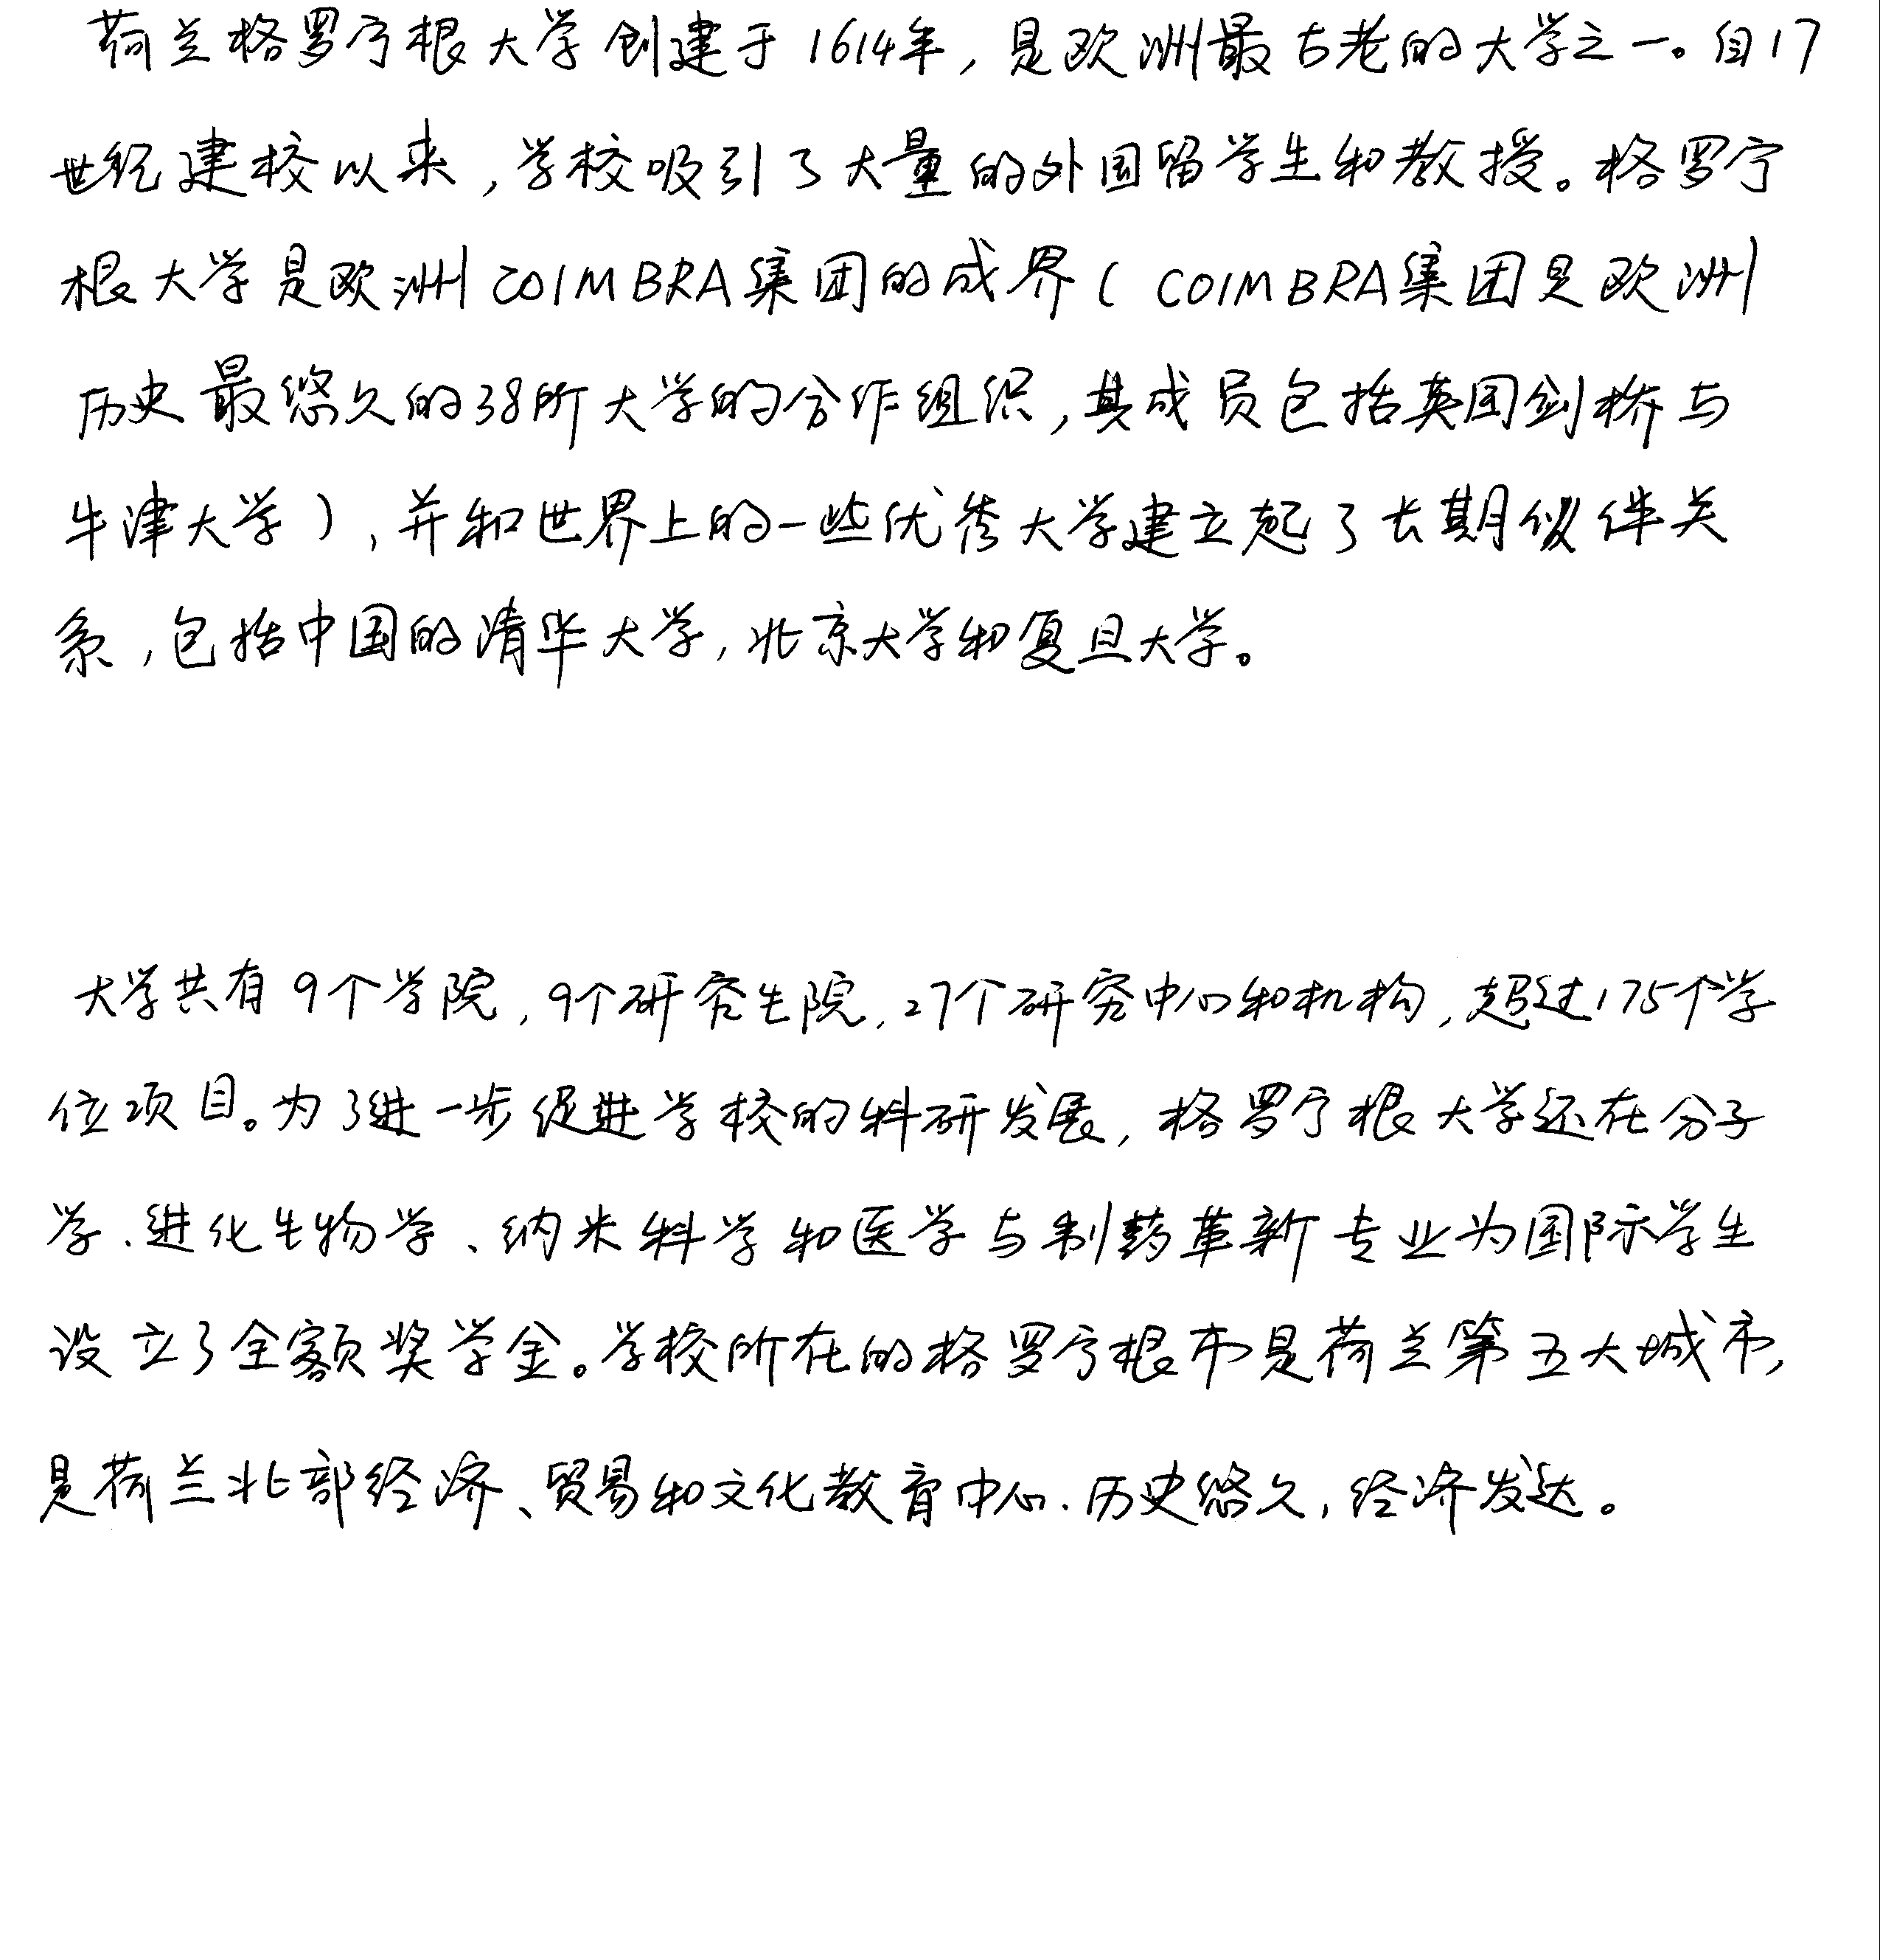 荷兰格罗宁根大学创建于1614年，是欧洲最古老的大学之一。自17
世纪建校以来，学校吸引了大量的外国留学生和教授。格罗宁
根大学是欧洲COIMBRA集团的成界（COIMBRA集团是欧洲
历史最悠久的38所大学的合作组织，其成员包括英国剑桥与
牛津大学），并和世界上的一些优秀大学建立起了长期伙伴关
系，包括中国的清华大学，北京大学和复旦大学。
大学共有9个学院，9个研究生院，27个研究中心和机构，超过175个学
位项目。为了进一步促进学校的科研发展，格罗宁根大学还在分子
学、进化生物学、纳米科学和医学与制药革新专业为国际学生
设立了全额奖学金。学校所在的格罗宁根市是荷兰第五大城市，
是荷兰北部经济、贸易和文化教育中心.历史悠久，经济发达。